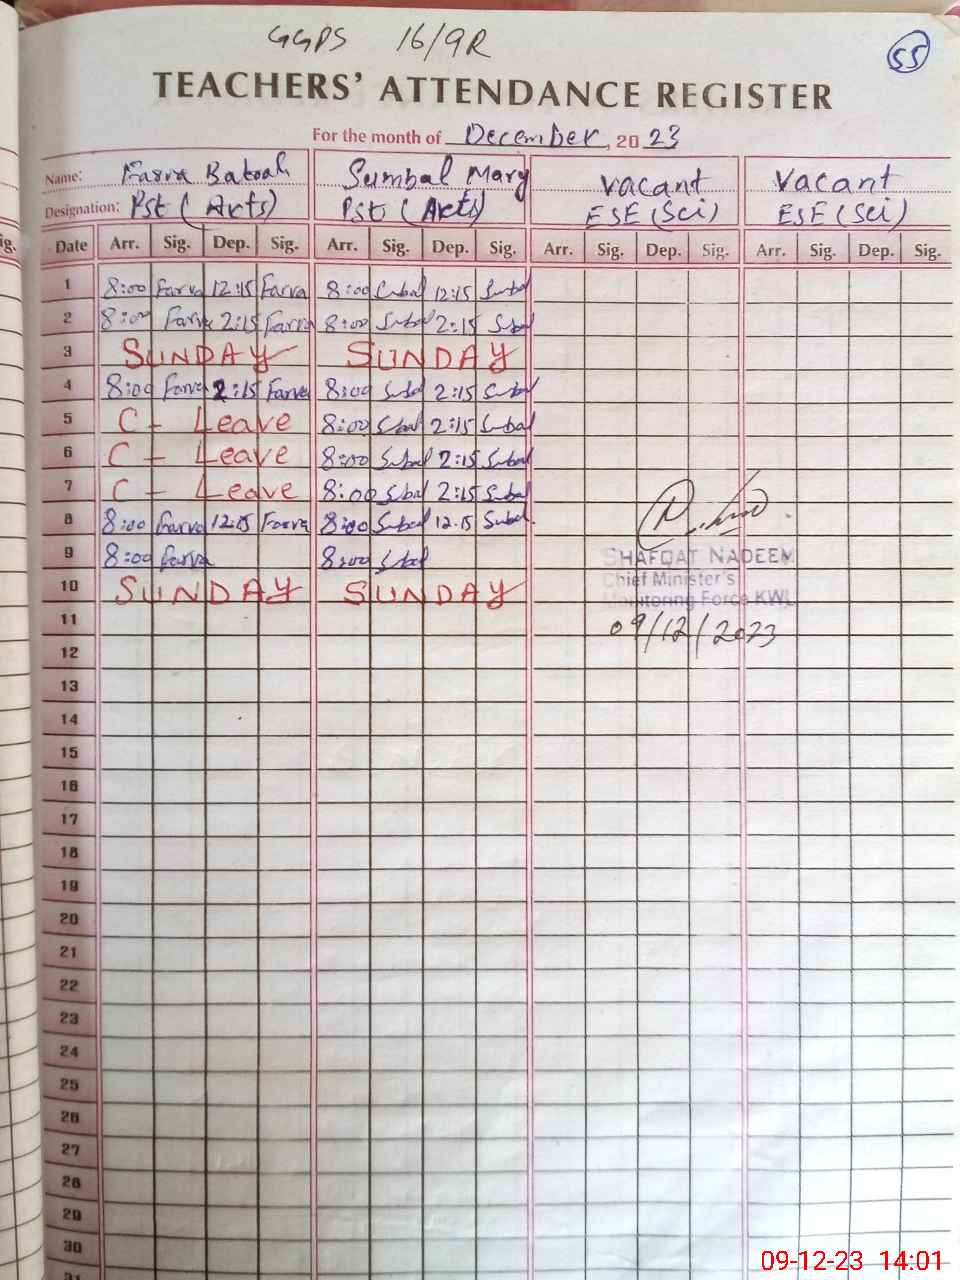 GGPS 16/9R
55
TEACHERS' ATTENDANCE REGISTER
For the month of December, 20 23
Name: Farva Batool Sumbal Mary vacant vacant
Designation: Pst (Arts) Pst (Arts) ESE (Sci) ESE (Sci)
ig. Date Arr. Sig. Dep. Sig. Arr. Sig. Dep. Sig. Arr. Sig. Dep. Sig. Arr. Sig. Dep. Sig.
1 8:00 Farva 12:15 Farva 8:00 Sumbal 12:15 Sumbal
2 8:00 Farva 2:15 Farva 8:00 Sumbal 2:15 Sumbal
3 SUNDAY SUNDAY
4 8:00 Farva 2:15 Farva 8:00 Sumbal 2:15 Sumbal
5 C - Leave 8:00 Sumbal 2:15 Sumbal
6 C - Leave 8:00 Sumbal 2:15 Sumbal
7 C - Leave 8:00 Sumbal 2:15 Sumbal
8 8:00 Farva 12:15 Farva 8:00 Sumbal 12.15 Sumbal
9 8:00 Farva 8:00 Sumbal
SHAFQAT NADEEM
Chief Minister's
Monitoring Force KWL
09/12/2023
10 SUNDAY SUNDAY
11
12
13
14
15
16
17
18
19
20
21
22
23
24
25
26
27
28
29
30
31
09-12-23 14:01